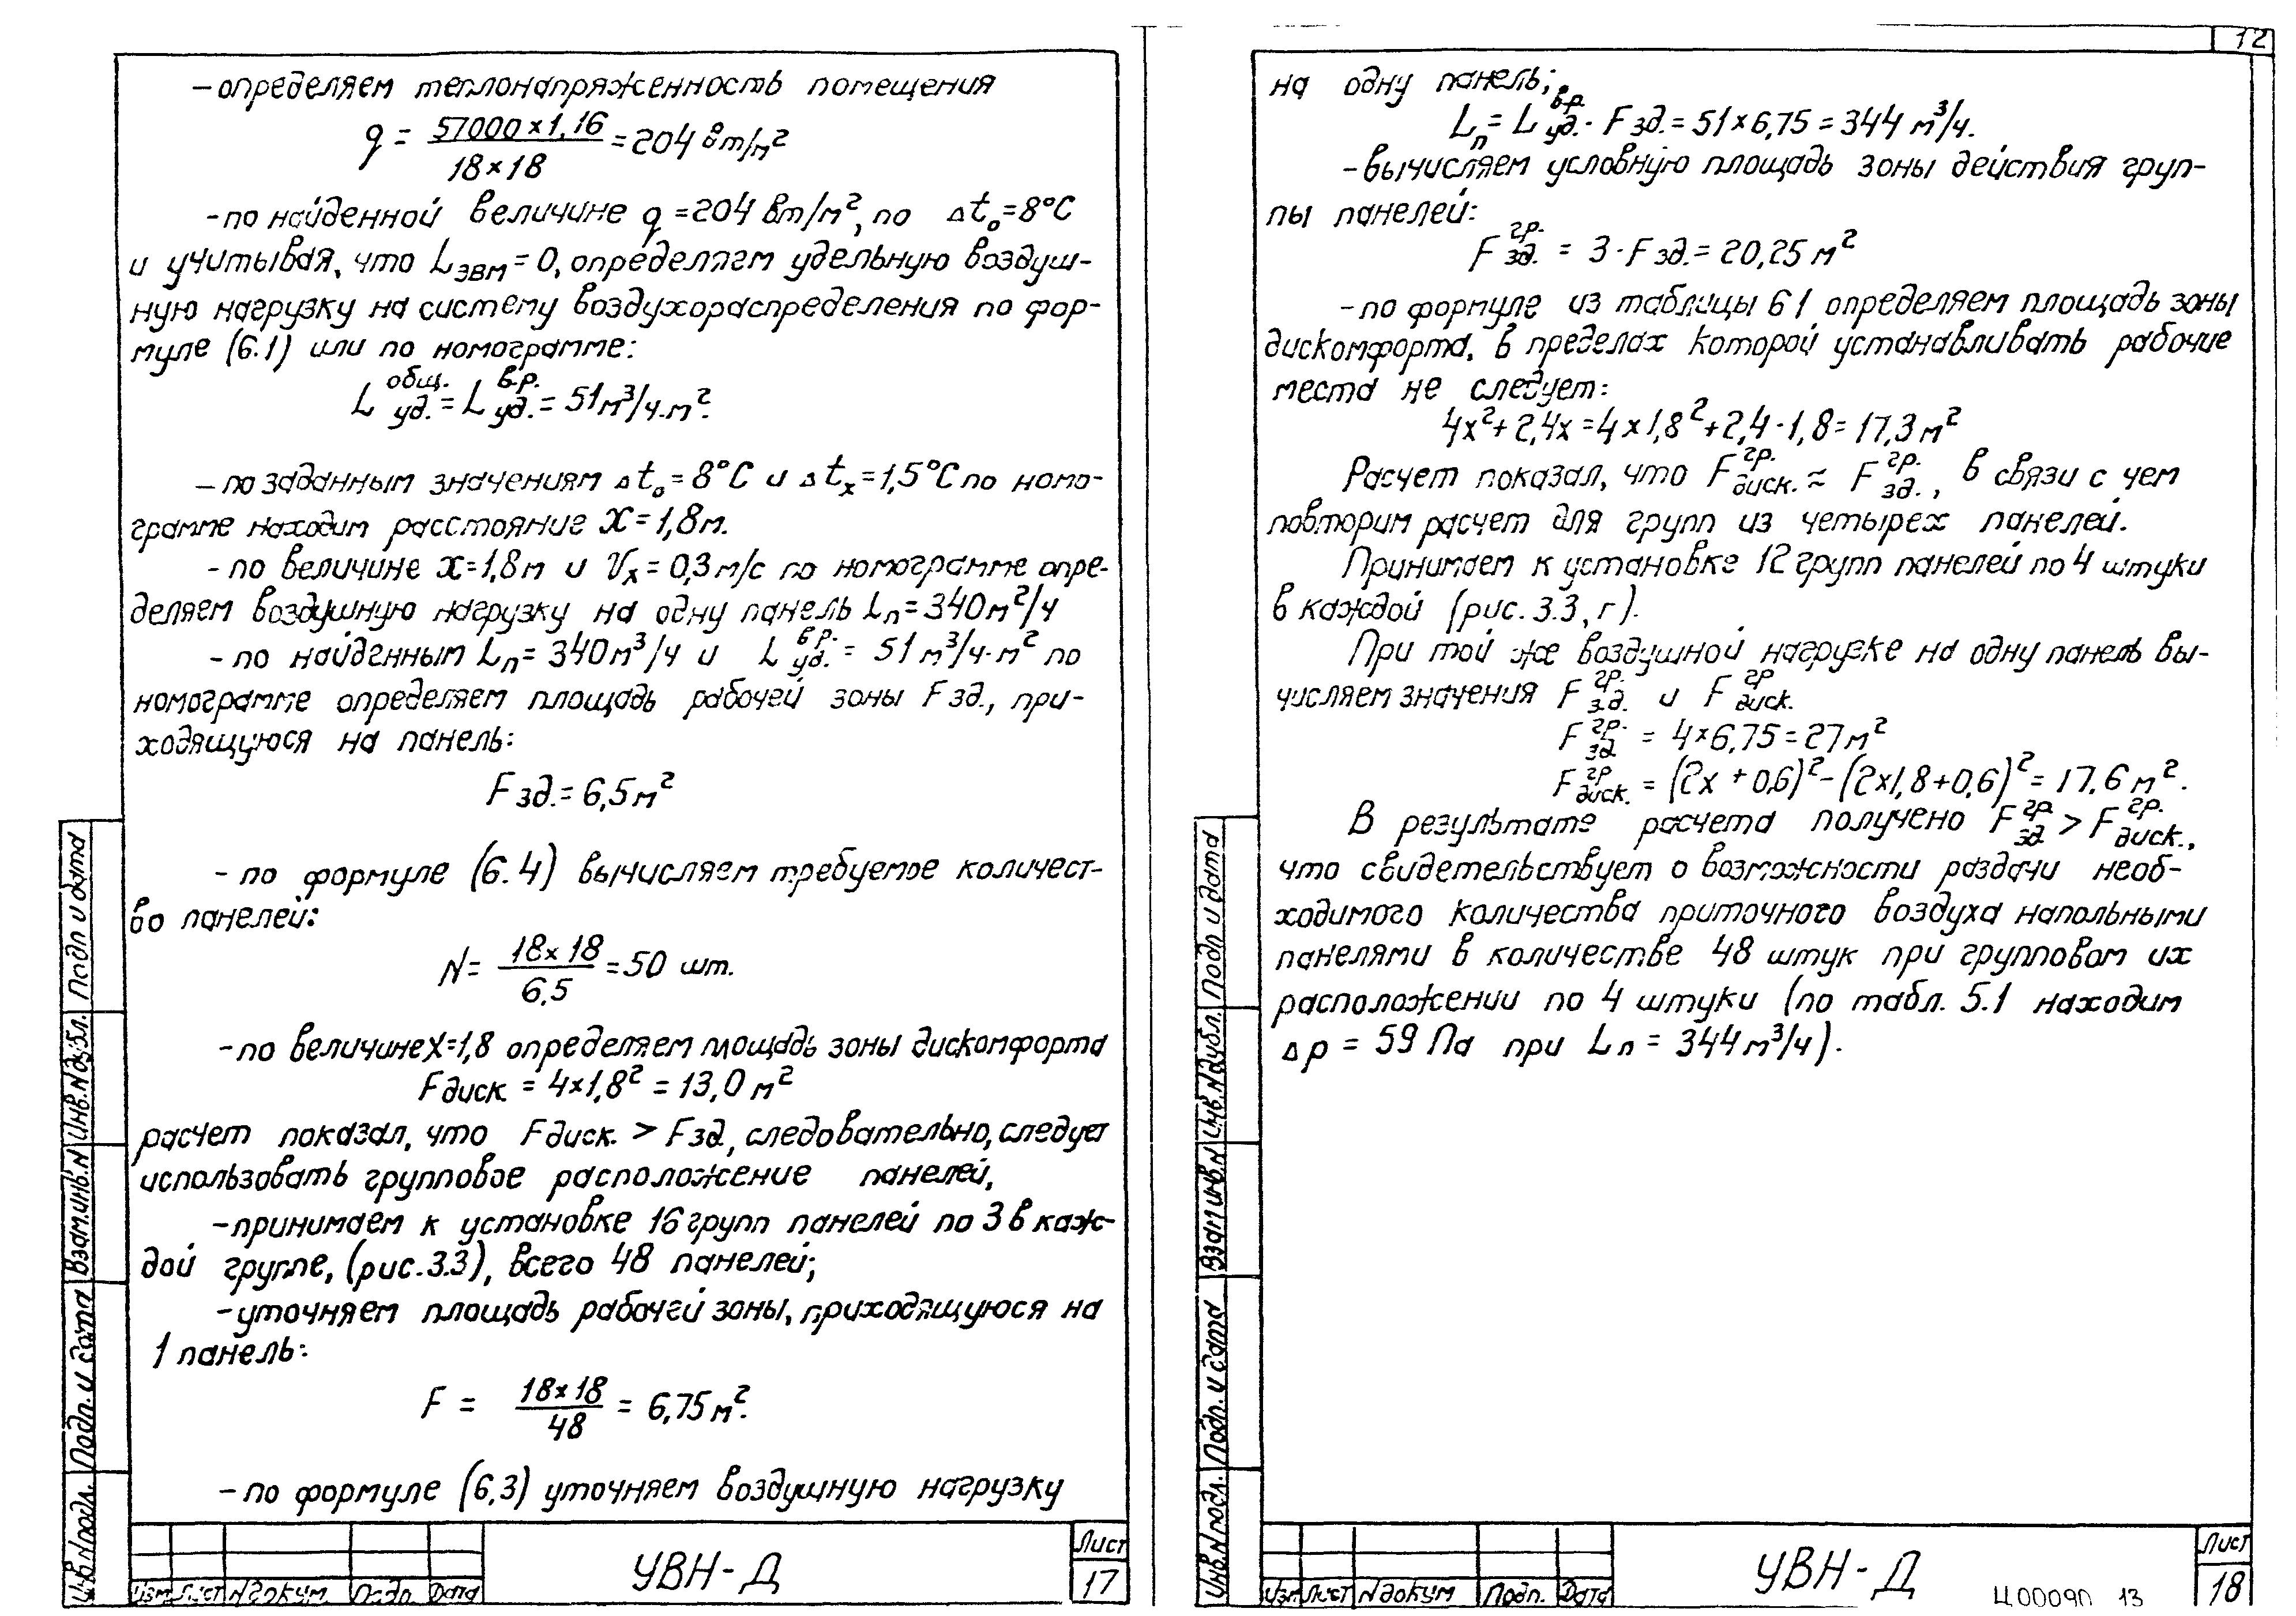 – определяем теплонапряженность помещения
q = 57000×1,16 / 18×18 = 204 Вт/м²
– по найденной величине q = 204 Вт/м², по Δt₀ = 8°С
и учитывая, что L ЭВМ = 0, определяем удельную воздуш-
ную нагрузку на систему воздухораспределения по фор-
муле (6.1) или по номограмме:
L общ. уд. = L в.р. уд. = 51 м³/ч·м².
– по заданным значениям Δt₀ = 8°С и Δtₓ = 1,5°С по номо-
грамме находим расстояние X = 1,8 м.
– по величине x = 1,8 м и Vₓ = 0,3 м/с по номограмме опре-
деляем воздушную нагрузку на одну панель Lп = 340 м²/ч
– по найденным Lп = 340 м³/ч и L в.р. уд. = 51 м³/ч·м² по
номограмме определяем площадь рабочей зоны F зд., при-
ходящуюся на панель:
F зд. = 6,5 м²
– по формуле (6.4) вычисляем требуемое количест-
во панелей:
N = 18×18 / 6,5 = 50 шт.
– по величине X=1,8 определяем площадь зоны дискомфорта
F диск. = 4×1,8² = 13,0 м²
расчет показал, что F диск. > F зд., следовательно, следует
использовать групповое расположение панелей,
– принимаем к установке 16 групп панелей по 3 в каж-
дой группе, (рис. 3.3), всего 48 панелей;
– уточняем площадь рабочей зоны, приходящуюся на
1 панель:
F = 18×18 / 48 = 6,75 м².
– по формуле (6,3) уточняем воздушную нагрузку
Подп и дата
Инв.N дубл.
Взам.инв.N
Подп. и дата
Инв.N подл.
Изм Лист N докум Подп. Дата
УВН-Д
Лист
17
12
на одну панель;
Lп = L в.р. уд. · F зд. = 51×6,75 = 344 м³/ч.
– вычисляем условную площадь зоны действия груп-
пы панелей:
F гр. зд. = 3·F зд. = 20,25 м²
– по формуле из таблицы 6 1 определяем площадь зоны
дискомфорта, в пределах которой устанавливать рабочие
места не следует:
4x²+2,4x = 4×1,8²+2,4·1,8 = 17,3 м²
Расчет показал, что F гр. диск. ≈ F гр. зд., в связи с чем
повторим расчет для групп из четырех панелей.
Принимаем к установке 12 групп панелей по 4 штуки
в каждой (рис. 3.3, г).
При той же воздушной нагрузке на одну панель вы-
числяем значения F гр. зд. и F гр диск.
F гр. зд = 4×6,75 = 27 м²
F гр диск. = (2x + 0,6)² – (2×1,8+0,6)² = 17.6 м².
В результате расчета получено F гр зд > F гр. диск.,
что свидетельствует о возможности раздачи необ-
ходимого количества приточного воздуха напольными
панелями в количестве 48 штук при групповом их
расположении по 4 штуки (по табл. 5.1 находим
Δp = 59 Па при Lп = 344 м³/ч).
Подп и дата
Инв.N дубл.
Взам инв.N
Подп. и дата
Инв.N подл.
Изм Лист N докум Подп. Дата
УВН-Д
Лист
18
Ц00090 13